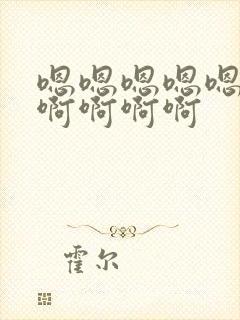 嗯嗯嗯嗯嗯
啊啊啊啊
霍尔